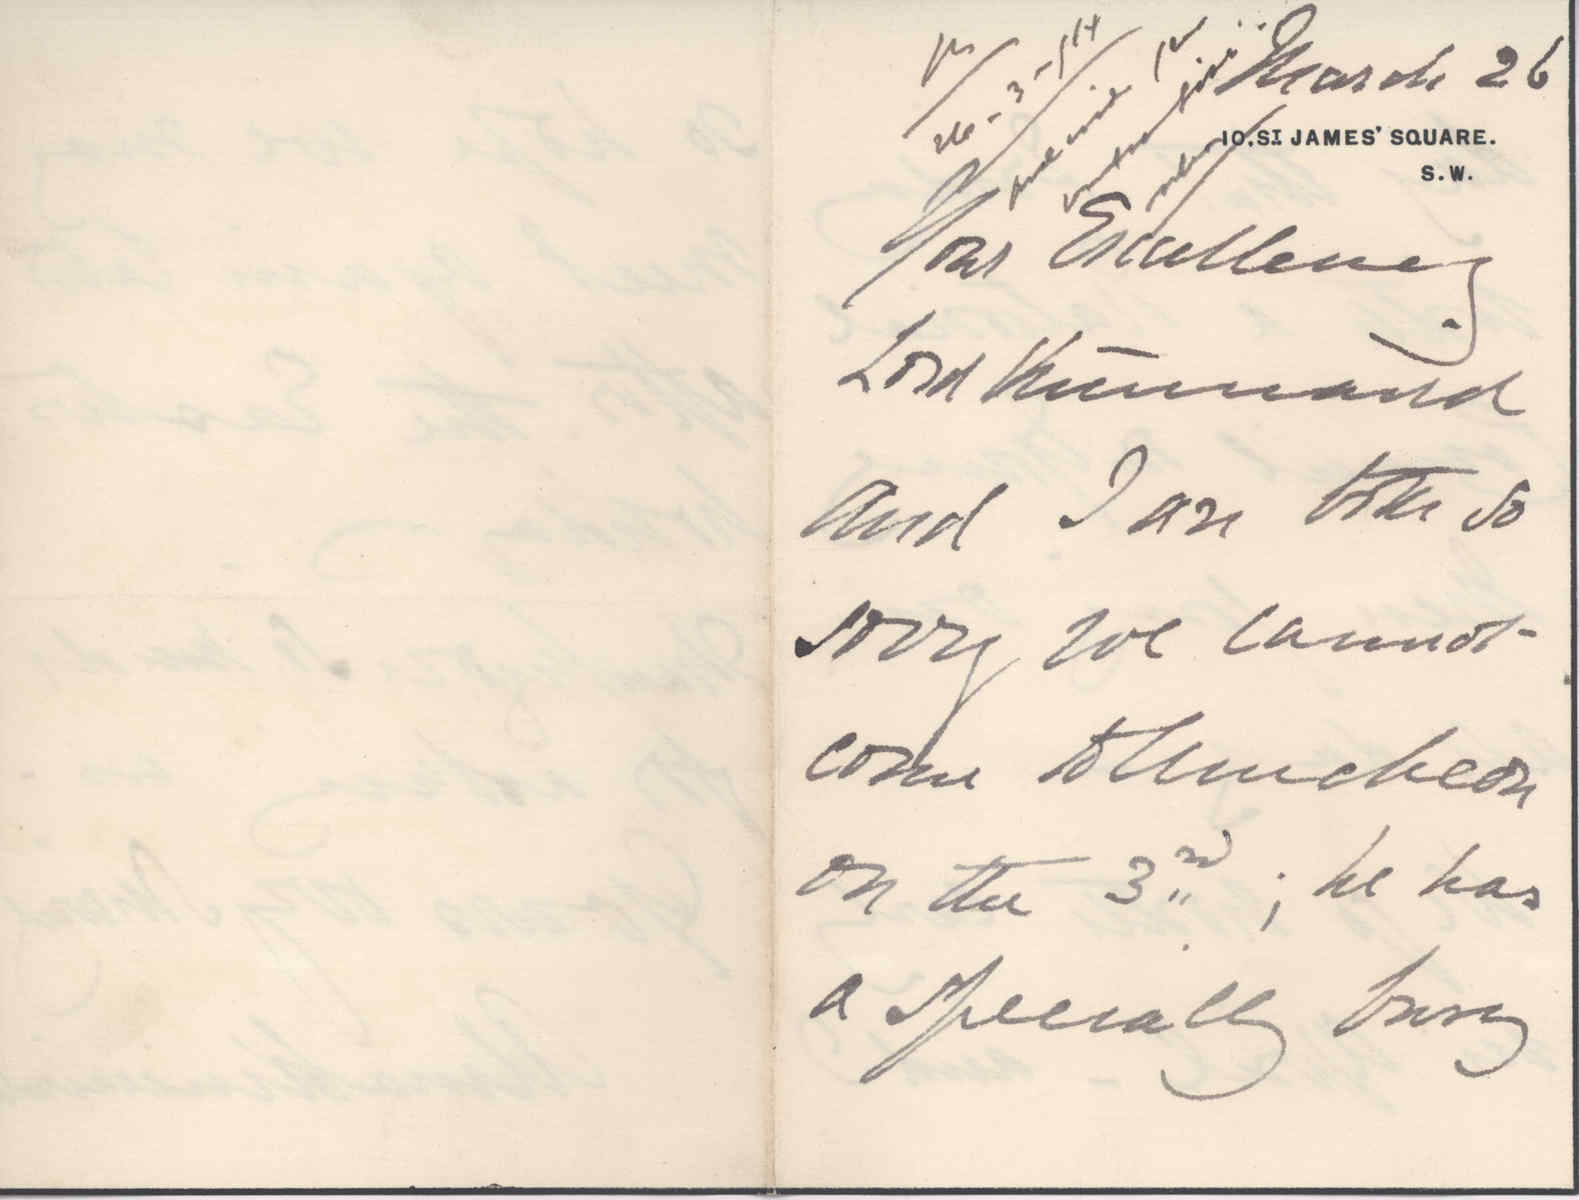 March 26
10, ST JAMES' SQUARE.
S.W.
26-3-/14
Your Excellency
Lord Kinnaird
and I are both so
sorry we cannot
come to luncheon
on the 3rd; he has
a specially busy